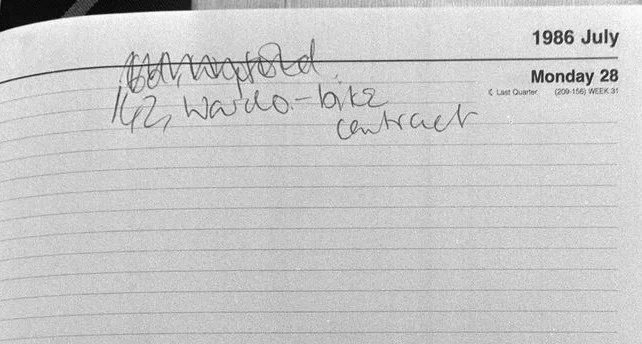 1986 July
Monday 28
☾ Last Quarter (209-156) WEEK 31
142, Wardo.-bike
contract